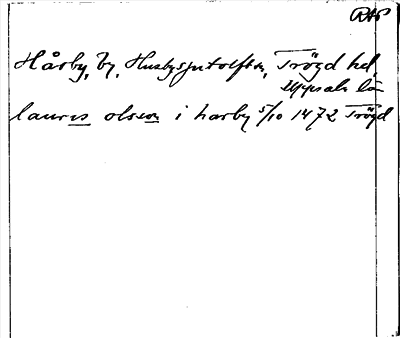 RAP
Hårby, by, Husbysjutolften, Trögd hd,
Uppsala län
lauris olson i harby 5/10 1472 Trögd